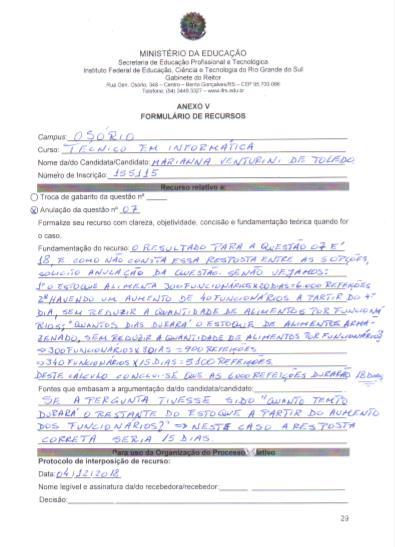 MINISTÉRIO DA EDUCAÇÃO
Secretaria de Educação Profissional e Tecnológica
Instituto Federal de Educação, Ciência e Tecnologia do Rio Grande do Sul
Gabinete do Reitor
Rua Gen. Osório, 348 – Centro – Bento Gonçalves/RS – CEP 95.700-086
Telefone: (54) 3449.3327 – www.ifrs.edu.br
ANEXO V
FORMULÁRIO DE RECURSOS
Campus: OSÓRIO
Curso: TÉCNICO EM INFORMÁTICA
Nome da/do Candidata/Candidato: MARIANNA VENTURINI DE TOLEDO
Número de Inscrição: 155115
Recurso relativo a:
Troca de gabarito da questão nº
Anulação da questão nº 07
Formalize seu recurso com clareza, objetividade, concisão e fundamentação teórica quando for
o caso.
Fundamentação do recurso: O RESULTADO PARA A QUESTÃO 07 É
18, E COMO NÃO CONSTA ESSA RESPOSTA ENTRE AS OPÇÕES,
SOLICITO ANULAÇÃO DA QUESTÃO. SENÃO VEJAMOS:
1º O ESTOQUE ALIMENTA 300 FUNCIONÁRIOS X 20 DIAS = 6.000 REFEIÇÕES
2º HAVENDO UM AUMENTO DE 40 FUNCIONÁRIOS A PARTIR DO 4º
DIA, SEM REDUZIR A QUANTIDADE DE ALIMENTOS POR FUNCIONÁ
RIOS; "QUANTOS DIAS DURARÁ O ESTOQUE DE ALIMENTOS ARMA
ZENADO, SEM REDUZIR A QUANTIDADE DE ALIMENTOS POR FUNCIONÁRIOS?
⇒ 300 FUNCIONÁRIOS X 3 DIAS = 900 REFEIÇÕES
⇒ 340 FUNCIONÁRIOS X 15 DIAS = 5100 REFEIÇÕES
DESTE CÁLCULO CONCLUI-SE QUE AS 6.000 REFEIÇÕES DURARÃO 18 DIAS
Fontes que embasam a argumentação da/do candidata/candidato:
SE A PERGUNTA TIVESSE SIDO "QUANTO TEMPO
DURARÁ O RESTANTE DO ESTOQUE A PARTIR DO AUMENTO
DOS FUNCIONÁRIOS?" ⇒ NESTE CASO A RESPOSTA
CORRETA SERIA 15 DIAS.
Para uso da Organização do Processo Seletivo
Protocolo de interposição de recurso:
Data: 04/12/2018
Nome legível e assinatura da/do recebedora/recebedor:
Decisão:
29